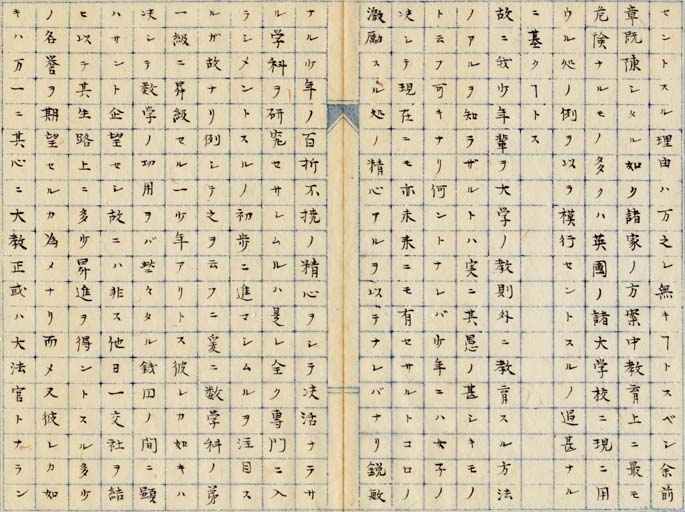 セントスル理由ハ万之レ無キヿトスベシ余前
章既陳シタル如ク諸家ノ方案中教育上ニ最モ
危険ナルモノ多クハ英國ノ諸大学校ニ現ニ用
ウル処ノ例ヲ以ヲ模行セントスルノ過甚ナル
ニ基クヿトス
故ニ我少年輩ヲ大学ノ教則外ニ教育スル方法
ノアルヲ知ラザルトハ実ニ其愚ノ甚シキモノ
ト云フ可キナリ何ントナレバ少年ニハ女子ノ
决シテ現在ニモ亦未来ニモ有セサルトコロノ
激励スル処ノ精心アルヲ以テナレバナリ鋭敏
ナル少年ノ百折不撓ノ精心ヲシテ决活ナラサ
ル学科ヲ研究セサシムルハ是レ全ク専門ニ入
ラシメントスルノ初歩ニ進マシムルヲ注目ス
ルガ故ナリ例シテ之ヲ云フニ爰ニ数学科ノ第
一級ニ昇級セル一少年アリトス彼レカ如キハ
决シテ数学ノ功用ヲバ些々タル銭田ノ間ニ顕
ハサント企望セシ故ニハ非ス他日一交社ヲ結
ヒ以テ其生路上ニ多少昇進ヲ得ントスル多少
ノ名誉ヲ期望セルカ為メナリ而メス彼レカ如
キハ万一ニ其心ニ大教正或ハ大法官トナラン